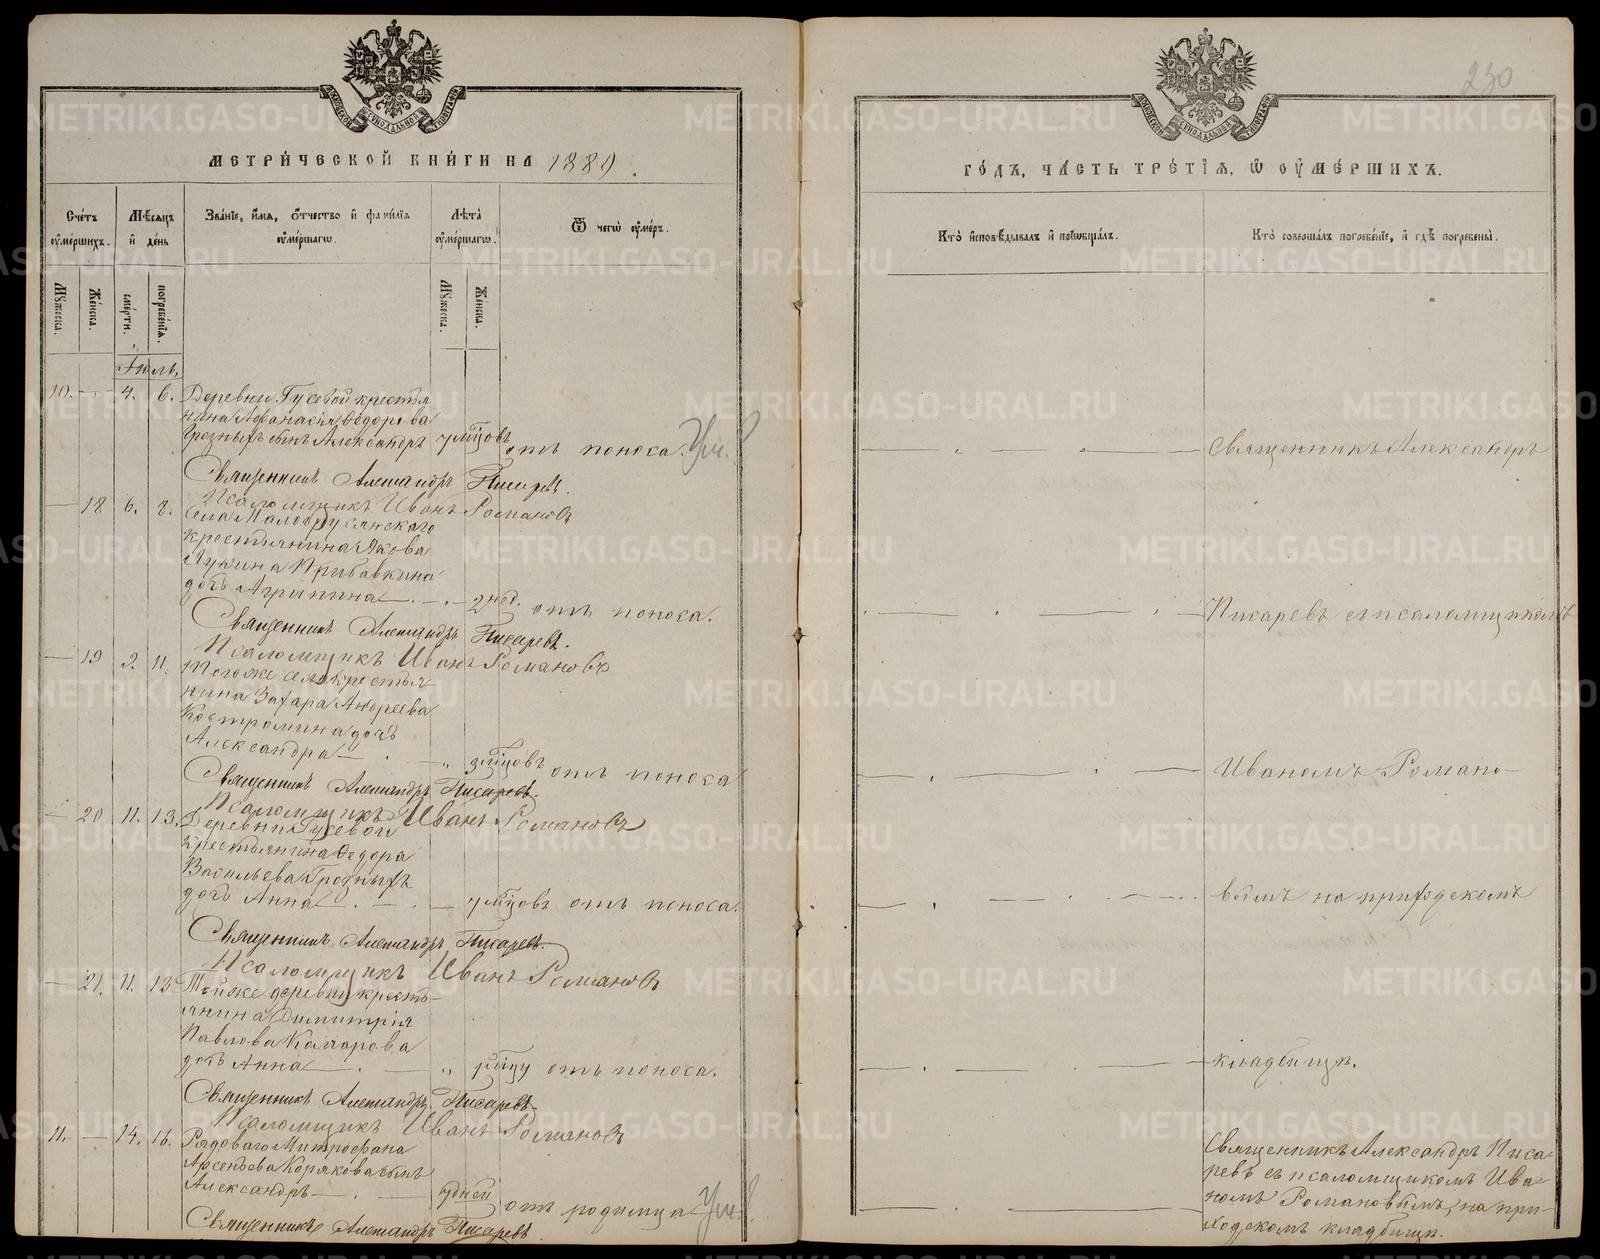 МЕТРИ́ЧЕСКОЙ КНИ́ГИ НА 1889.
Сче́тъ ᲂу҆ме́ршихъ.
Мѣ́сяцъ и҆ де́нь
Зва́нїе, и҆́мѧ, ѻ҆́тчество и҆ фами́лїѧ ᲂу҆ме́ршагѡ.
Лѣ́та ᲂу҆ме́ршагѡ.
Ѿ чегѡ̀ ᲂу҆́меръ.
Мꙋ́жеска.
Же́нска.
сме́рти.
погребе́нїѧ.
Мꙋ́жеска.
Же́нска.
Іюль,
10. — 4. 6. Деревни Гусевой крестья
нина Афанасія Ѳедорова
Грозныхъ сынъ Александръ
отъ поноса.
Священникъ Александръ Писаревъ.
Псаломщикъ Иванъ Романовъ
— 18 6. 8. Села
крестьянина Якова
Лукина Прибавкина
дочь Агрипина — 2 нед. отъ поноса.
Священникъ Александръ Писаревъ.
Псаломщикъ Иванъ Романовъ
— 19 9. 11. Тогоже села крестья
нина Захара Андреева
Костромина дочь
Александра — отъ поноса
Священникъ Александръ Писаревъ.
Псаломщикъ Иванъ Романовъ
— 20 11. 13. Деревни Гусевой
крестьянина Ѳедора
Васильева Грозныхъ
дочь Анна — отъ поноса.
Священникъ Александръ Писаревъ.
Псаломщикъ Иванъ Романовъ
— 21. 11. 13 Тойже деревни кресть-
янина Димитрія
Павлова Комарова
дочь Анна — отъ поноса.
Священникъ Александръ Писаревъ.
Псаломщикъ Иванъ Романовъ
11. — 14. 16. Рядоваго Митрофана
Арсеньева Корякова сынъ
Александръ — дней отъ родимца
Священникъ Александръ Писаревъ.
230
ГО́ДЪ, ЧА́СТЬ ТРЕ́ТЇѦ, Ѡ҆ ᲂУ҆МЕ́РШИХЪ.
Кто̀ и҆сповѣ́дывалъ и҆ прїѡбща́лъ.
Кто̀ соверша́лъ погребе́нїе, и҆ гдѣ̀ погребены̀.
Священникъ Александръ
Писаревъ съ псаломщикомъ
Иваномъ Романо-
вымъ на приходскомъ
кладбищѣ.
Священникъ Александръ Писа-
ревъ съ псаломщикомъ Ива-
номъ Романовымъ, на при-
ходскомъ кладбищѣ.
METRIKI.GASO-URAL.RU